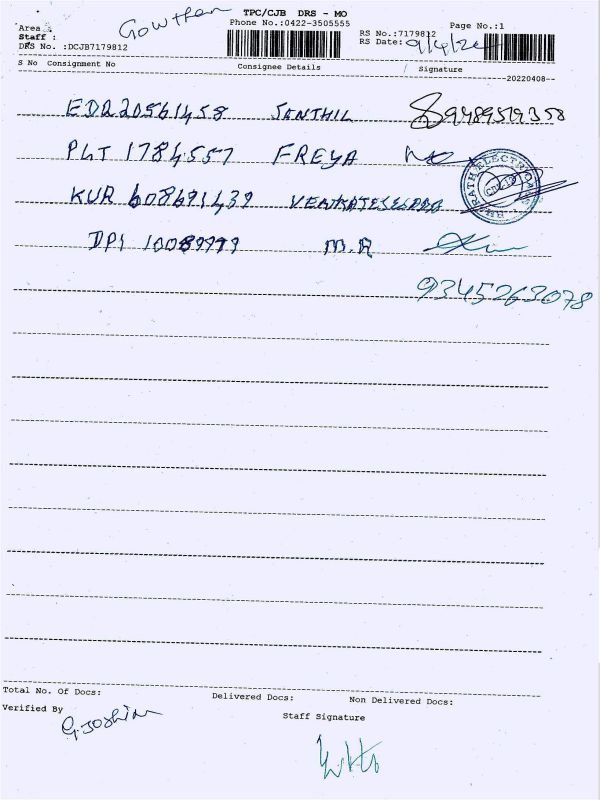 TPC/CJB DRS - MO
Gowtham
Phone No.:0422-3505555
Page No.:1
Area &
Staff :
RS No.:7179812
RS Date: 9/4/22
DRS No. :DCJB7179812
S No Consignment No Consignee Details / Signature
20220408
EDR20561458 SENTHIL 9489519358
PLT 1784557 FREYA
KUR 608691439
DPI M.R
9345263078
Total No. Of Docs:
Delivered Docs: Non Delivered Docs:
Verified By
Staff Signature